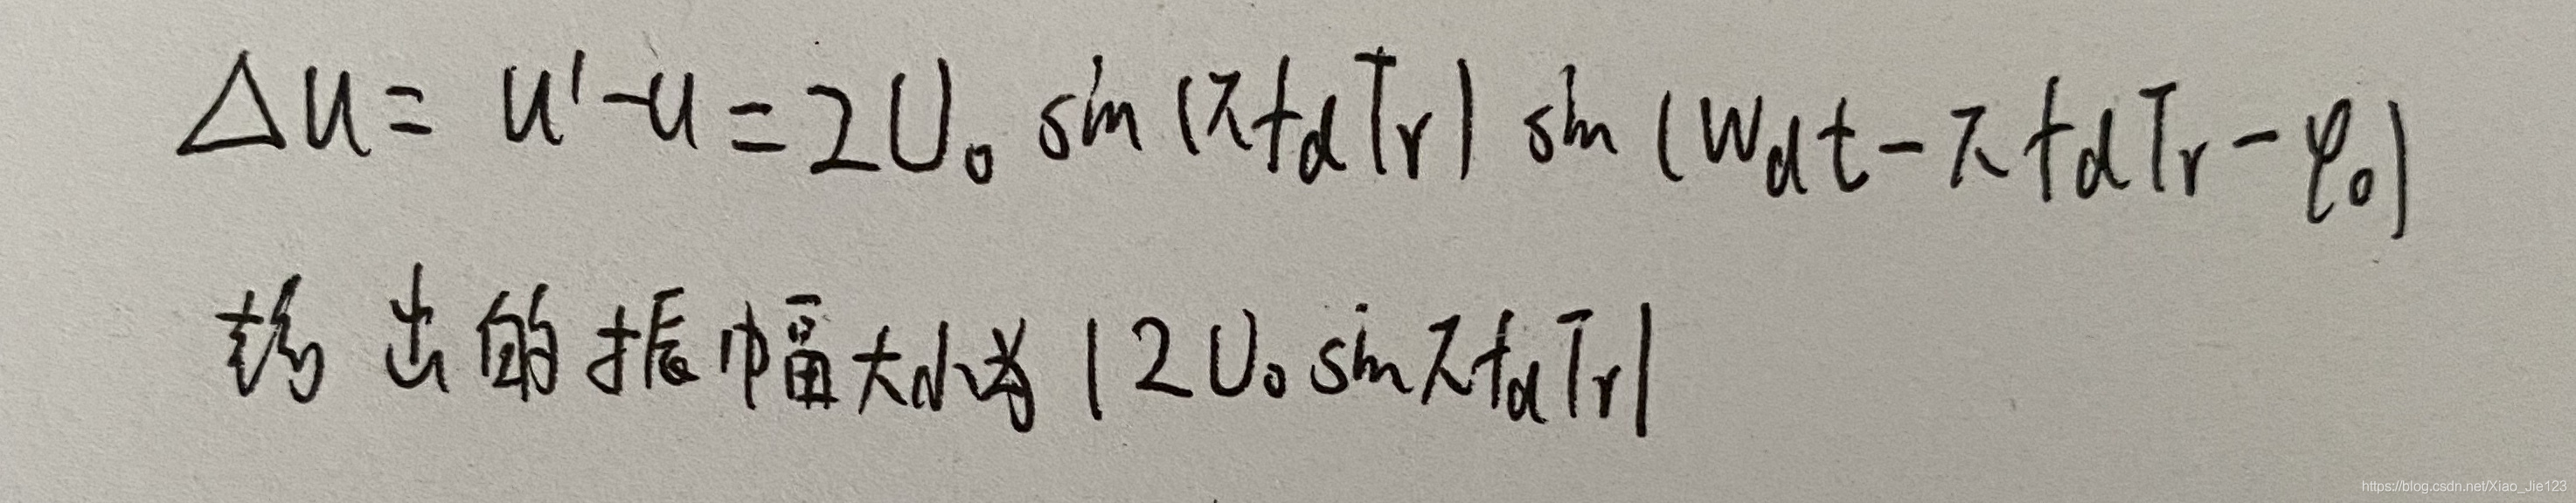 Δu = u' - u = 2U₀ sin(πf_dT_r) sin(W_dt - πf_dT_r - φ₀)
输出的振幅大小为|2U₀ sinπf_dT_r|
https://blog.csdn.net/Xiao_Jie123